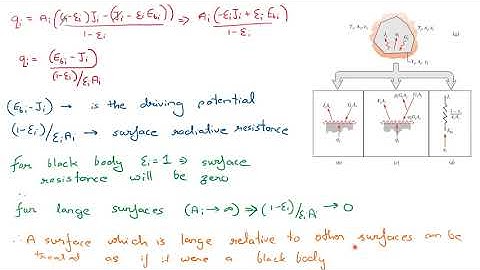 qᵢ = Aᵢ((1-εᵢ)Jᵢ - (Jᵢ - εᵢE_bi))/(1-εᵢ) ⇒ Aᵢ(-εᵢJᵢ + εᵢE_bi)/(1-εᵢ)
qᵢ = (E_bi - Jᵢ)/((1-εᵢ)/εᵢAᵢ)
(E_bi - Jᵢ) → is the driving potential
(1-εᵢ)/εᵢAᵢ → surface radiative resistance
For black body εᵢ = 1 ⇒ surface
resistance will be zero
∴
for large surfaces (Aᵢ → ∞) ⇒ (1-εᵢ)/εᵢAᵢ → 0
∴ A surface which is large relative to other surfaces can be
treated as if it were a black body
(a)
(b)
(c)
(d)